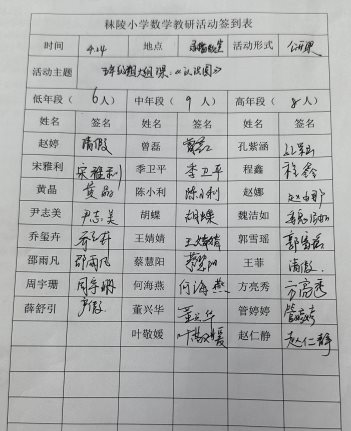 秣陵小学数学教研活动签到表
时间 4.14 地点 活动形式 公开课
活动主题 《认识圆》
低年段（6人） 中年段（9人） 高年段（8人）
姓名 签名 姓名 签名 姓名 签名
赵婷 请假 曾磊 曾磊 孔紫涵
宋雅利 宋雅利 季卫平 季卫平 程鑫 程鑫
黄晶 黄晶 陈小利 陈小利 赵娜
尹志美 尹志美 胡蝶 胡蝶 魏洁如
乔玺卉 乔玺卉 王婧婧 王婧婧 郭雪瑶 郭雪瑶
邵雨凡 邵雨凡 蔡慧阳 蔡慧阳 王菲 请假
周宇珊 周宇珊 何海燕 何海燕 方亮秀 方亮秀
薛舒引 产假 董兴华 董兴华 管婷婷 管婷婷
叶敬媛 叶敬媛 赵仁静 赵仁静